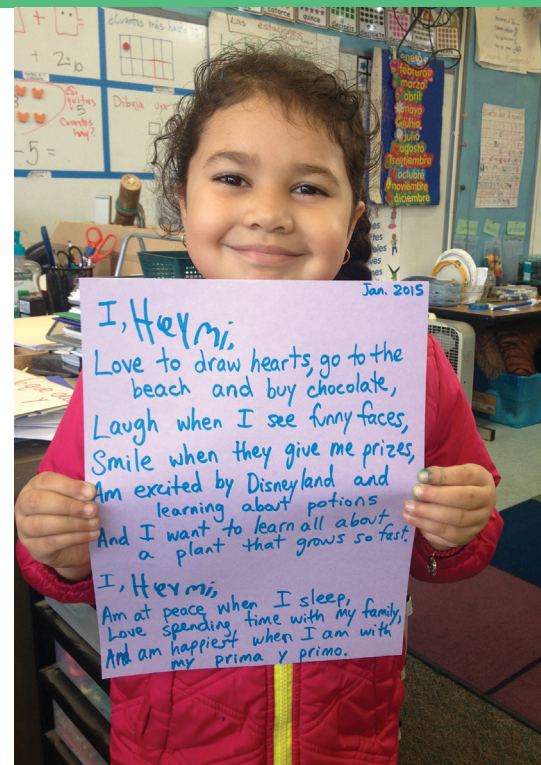 catorce
quince
Las estaciones
¿Cuántos más hasta
+ 2=10
Si
quitas
5
Cuántos
hay?
Dibuja una
-5 =
enero
febrero
marzo
abril
mayo
junio
julio
agosto
septiembre
octubre
noviembre
diciembre
Jan. 2015
I, Heymi,
Love to draw hearts, go to the
beach and buy chocolate,
Laugh when I see funny faces,
Smile when they give me prizes,
Am excited by Disneyland and
learning about potions
And I want to learn all about
a plant that grows so fast.
I, Heymi,
Am at peace when I sleep,
Love spending time with my family,
And am happiest when I am with
my prima y primo.